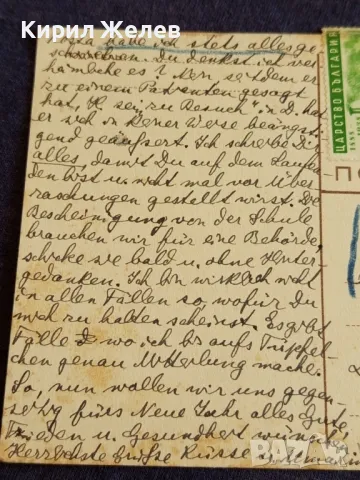 Кирил Желев
habe ich stets alles ge-
schrieben. Du denkst ich ver-
heimliche es? Nein seitdem er
zu einem Patienten gesagt
hat, "H. sei zu Besuch" in D. hat
er sich in keiner Weise beängsti-
gend geäußert. Ich schreibe Dir
alles, damit Du auf dem Laufen-
den bist u. nicht mal vor Über-
raschungen gestellt wirst. Die
Bescheinigung von der Schule
brauchen wir für eine Behörde,
schicke sie bald u. ohne Hinter-
gedanken. Ich bin wirklich nicht
in allen Fällen so, wofür Du
mich zu halten scheinst. Es gibt
Fälle wo ich bis aufs Tüpfel-
chen genau Mitteilung mache.
So, nun wollen wir uns gegen-
seitig fürs Neue Jahr alles Gute,
Frieden u. Gesundheit wünschen
Herzlichste Grüße Küsse
ЦАРСТВО БЪЛГАРИЯ
ПО
bazar